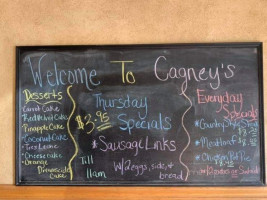 Welcome To Cagney's
Desserts
Carrot Cake
Red Velvet Cake
Pineapple Cake
Coconut Cake
Tres Leche
Cheesecake
Orange
Dreamsicle
Cake
Thursday
$3.95 Specials
*Sausage Links
w/2 eggs, side, &
bread
Till
11am
Everyday
Specials
*Country Style Steak
*Meatloaf
*Chicken Pot Pie